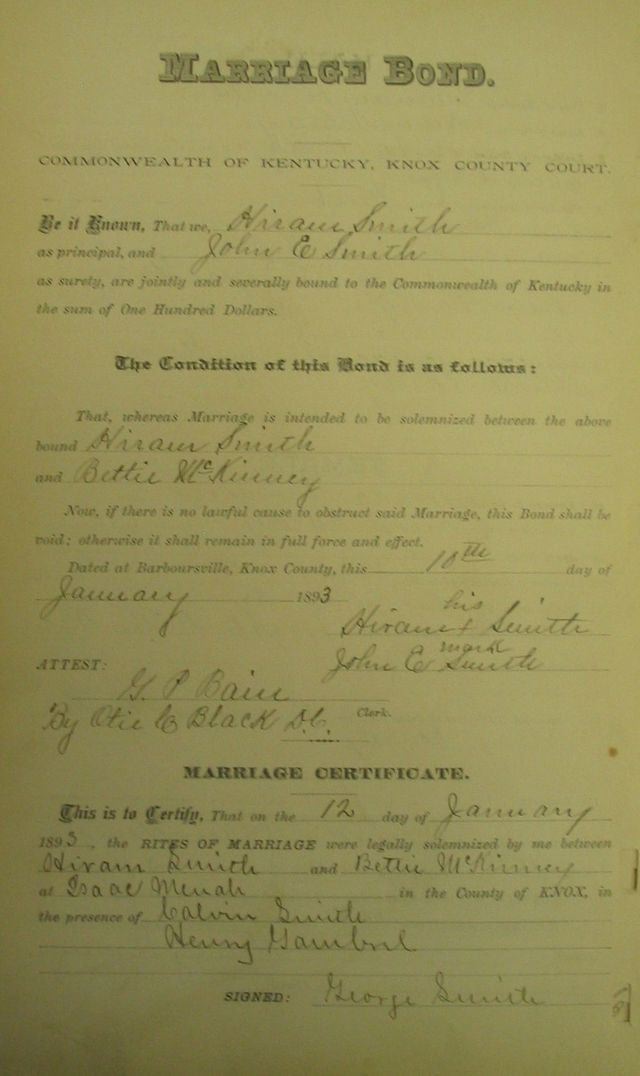 MARRIAGE BOND.
COMMONWEALTH OF KENTUCKY, KNOX COUNTY COURT.
Be it Known, That we, Hiram Smith
as principal, and John E Smith
as surety, are jointly and severally bound to the Commonwealth of Kentucky in
the sum of One Hundred Dollars.
The Condition of this Bond is as follows:
That, whereas Marriage is intended to be solemnized between the above
bound Hiram Smith
and Bettie McKinney
Now, if there is no lawful cause to obstruct said Marriage, this Bond shall be
void; otherwise it shall remain in full force and effect.
Dated at Barboursville, Knox County, this 10th day of
January 1893
his
Hiram x Smith
mark
John E Smith
ATTEST:
G. P. Bain
Clerk.
By Otie C Black D.C.
MARRIAGE CERTIFICATE.
This is to Certify, That on the 12 day of January
1893, the RITES OF MARRIAGE were legally solemnized by me between
Hiram Smith and Bettie McKinney
at Isaac in the County of KNOX, in
the presence of Calvin Smith
Henry Gambrel
SIGNED: George Smith